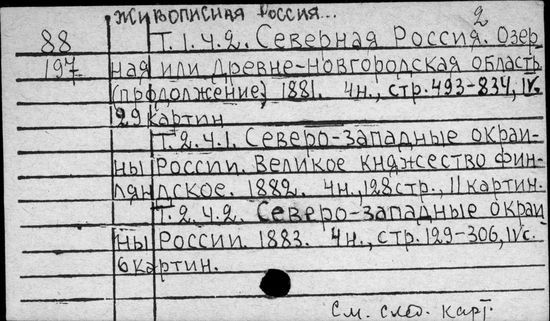 Живописная Россия... 2
88 Т.1.ч.2. Северная Россия. Озер
197 ная или Древне-новгородская область
(продолжение) 1881. 4н., стр.493-834, IVс.
29 картин
Т.2.ч.1. Северо-западные окраи-
ны России. Великое княжество Фин-
ляндское. 1882. 4н., 128стр., 11 картин.
Т.2.ч.2. Северо-западные окраи
ны России. 1883. 4н., стр.129-306, IVс.
6 картин.
См. след. карт.